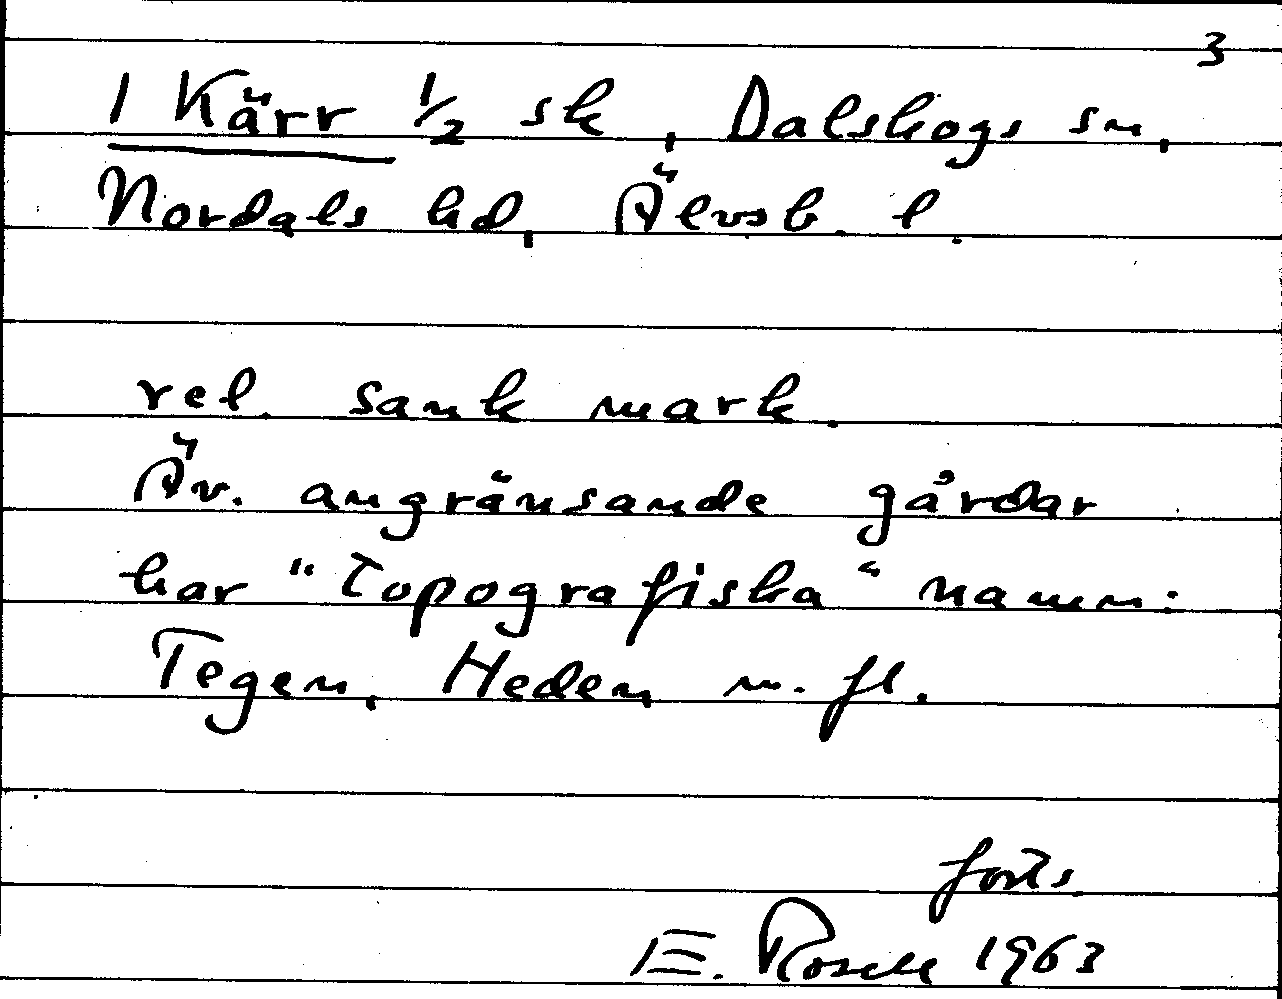 3
1 Kärr 1/2 sk, Dalskogs sn,
Nordals hd, Älvsb. l.
rel. sank mark.
Äv. angränsande gårdar
har "topografiska" namn:
Tegen, Heden m. fl.
forts.
E. Rosell 1963